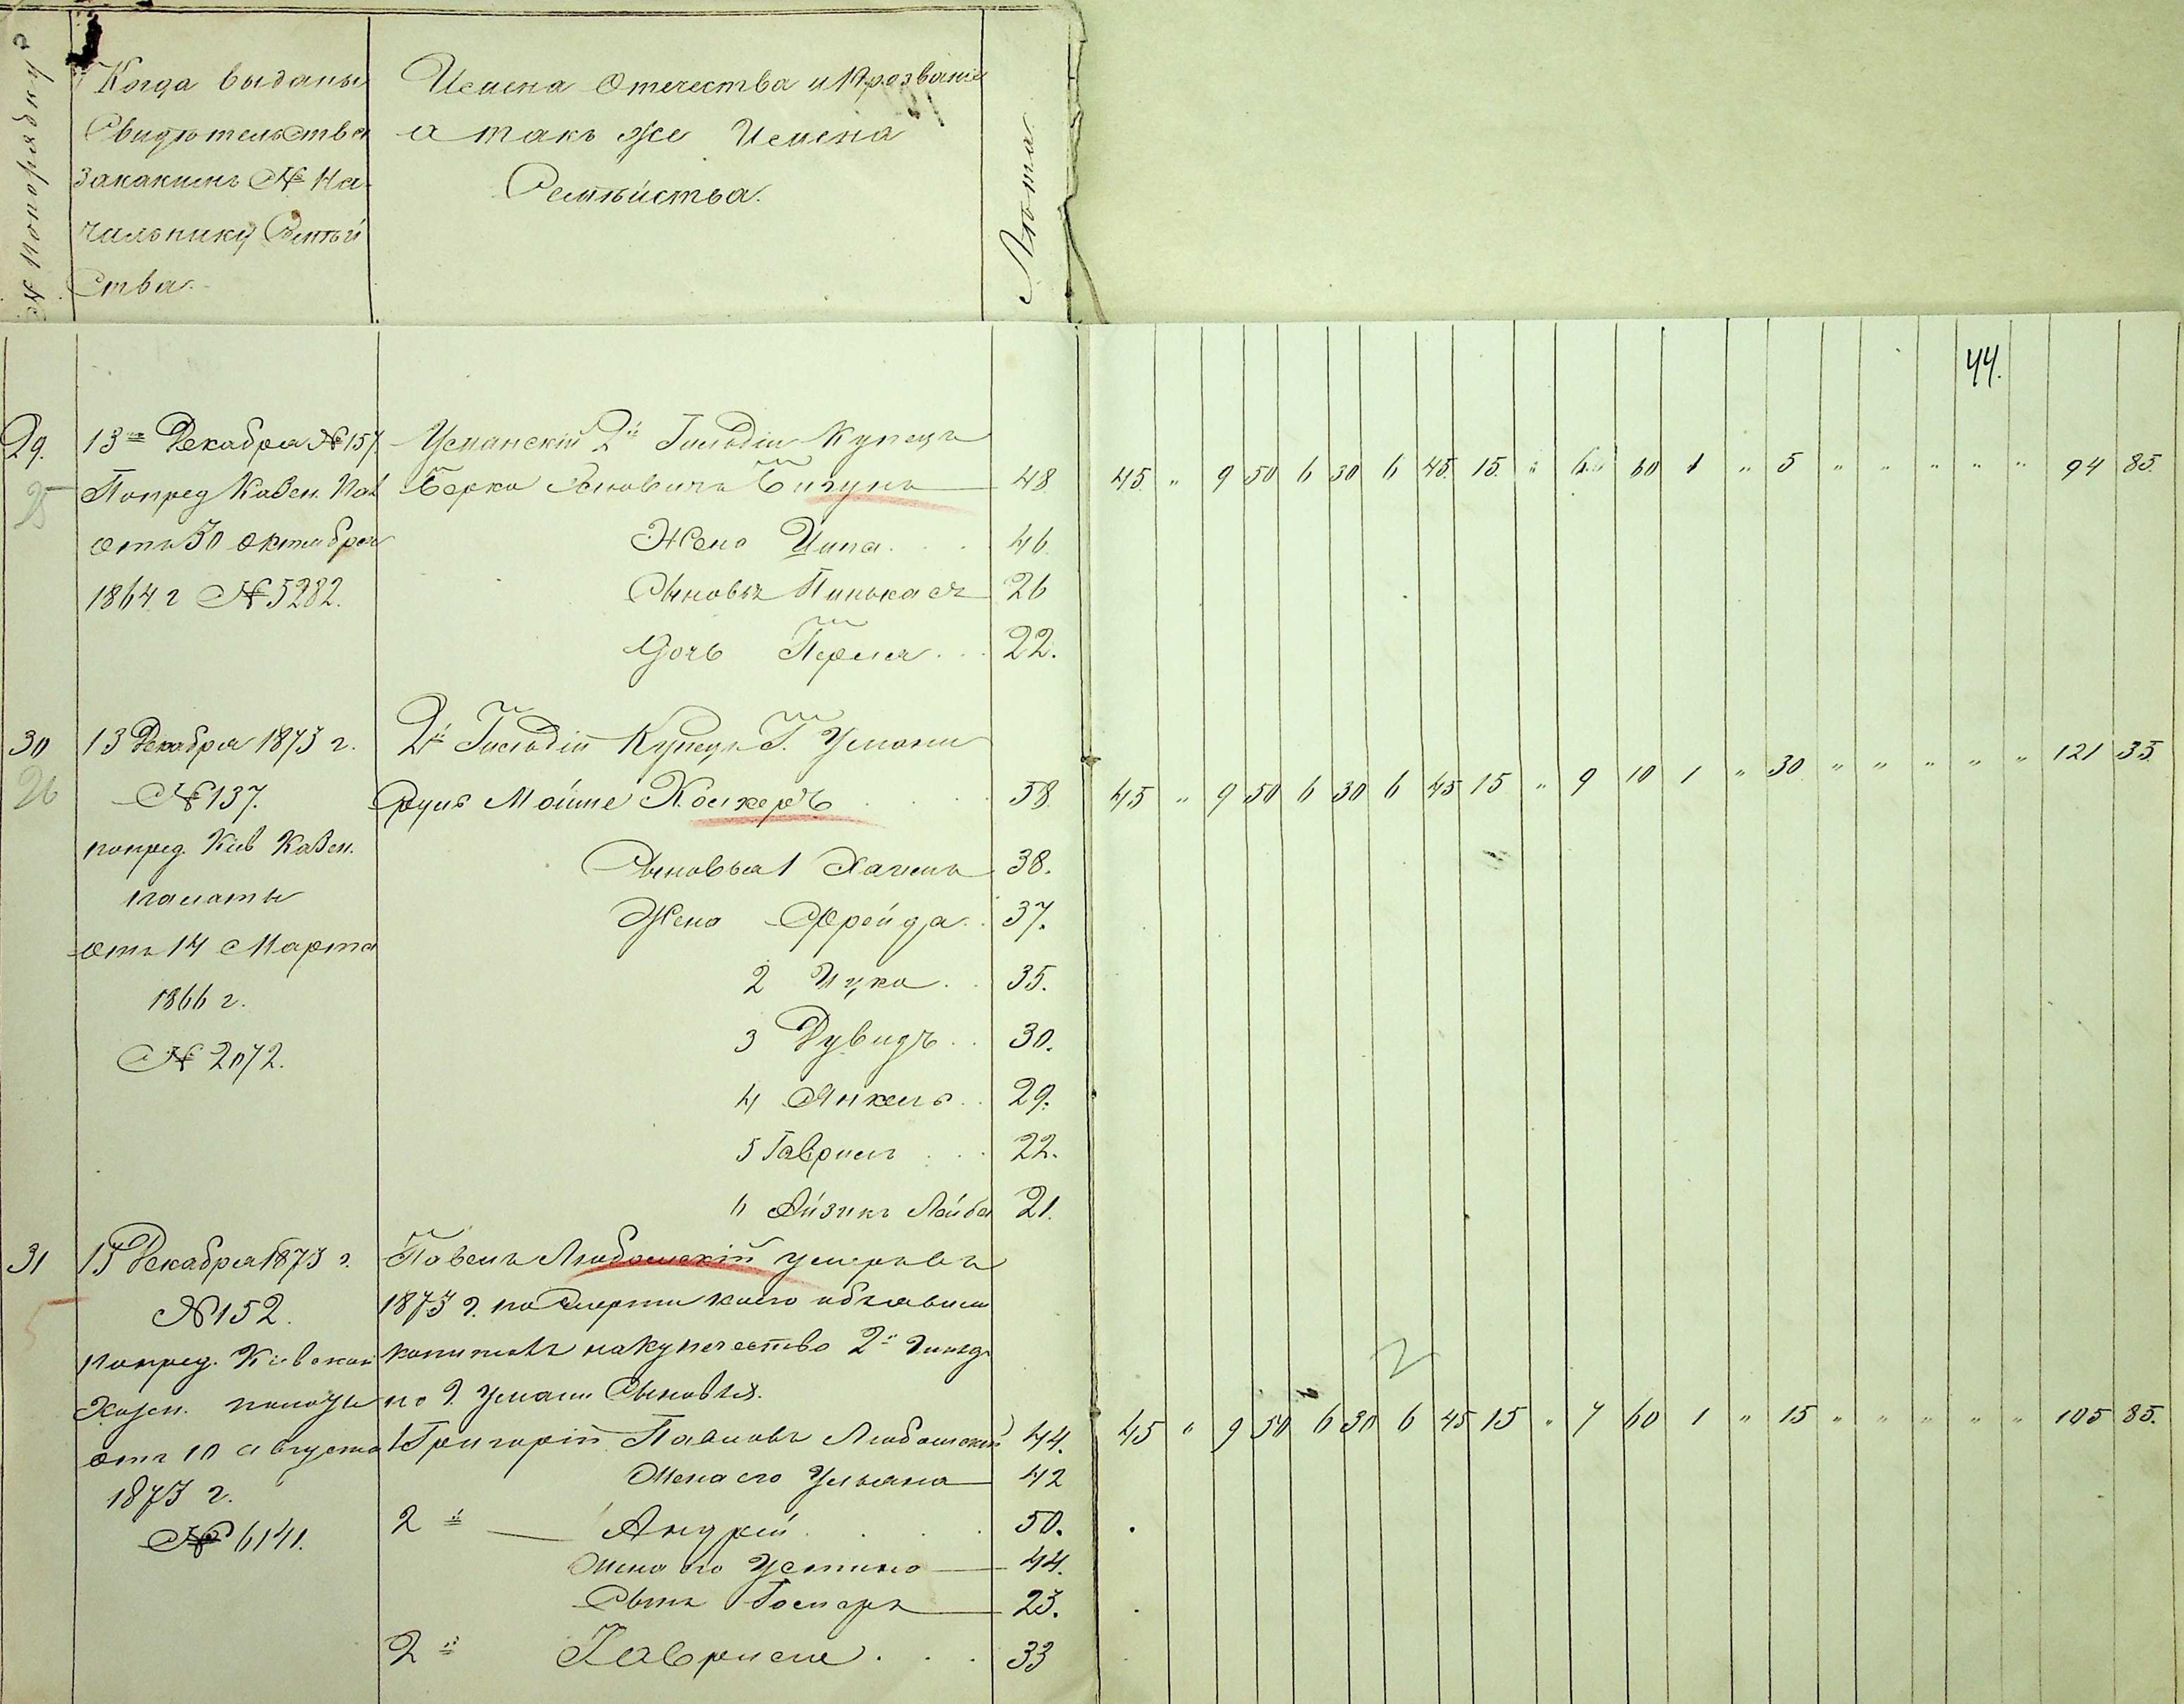 № по порядку
Когда выданы
Свидѣтельства
за какимъ № На-
чальнику Семѣй
ства.
Имена Отечества и Прозваніе
а такъ же Имена
Семѣйства.
Лѣта
44.
29.
25
13го Декабря № 157.
По пред Казен. Пал
отъ 30 Октября
1864 г № 5282.
Уманскій 2й Гильдіи Купецъ
Берко Бигунъ 48
45. " 9 50 6 30 6 45. 15. " 6 60 1 " 5 " " " " " 94 85.
Жена Ципа. 46
Сыновья Пинькасъ 26
Дочь Перля 22.
30
26
13 Декабря 1873 г.
№ 137.
по пред. Кіев Казен.
палаты
отъ 14 Марта
1866 г.
№ 2072.
2й Гильдіи Купецъ Г. Умани
Сруль Мойше 58.
45 " 9 50 6 30 6 45 15 " 9 10 1 " 30 " " " " " 121 35.
Сыновья 1 Хаимъ 38.
Жена Фрейда 37.
2 Ицко 35.
3 Дувидъ 30.
4 Янкель 29.
5 Гаврилъ 22.
6 Айзикъ Лейба 21.
31
5
15 Декабря 1873 г.
№ 152.
по пред. Кіевской
Казен. палаты
отъ 10 августа
1873 г.
№ 6141.
Павелъ Любомскій умеръ въ
1873 г. по смерти коего объявили
капиталъ на купечество 2й гильд
по г. Умани Сыновья.
1 Григорій Павловъ Любомскій 44.
45 " 9 50 6 30 6 45 15 " 7 60 1 " 15 " " " " " 105 85.
Жена его Ульяна 42
2й Андрей 50.
Жена его Устина 44.
Сынъ 23.
2й Гаврило 33